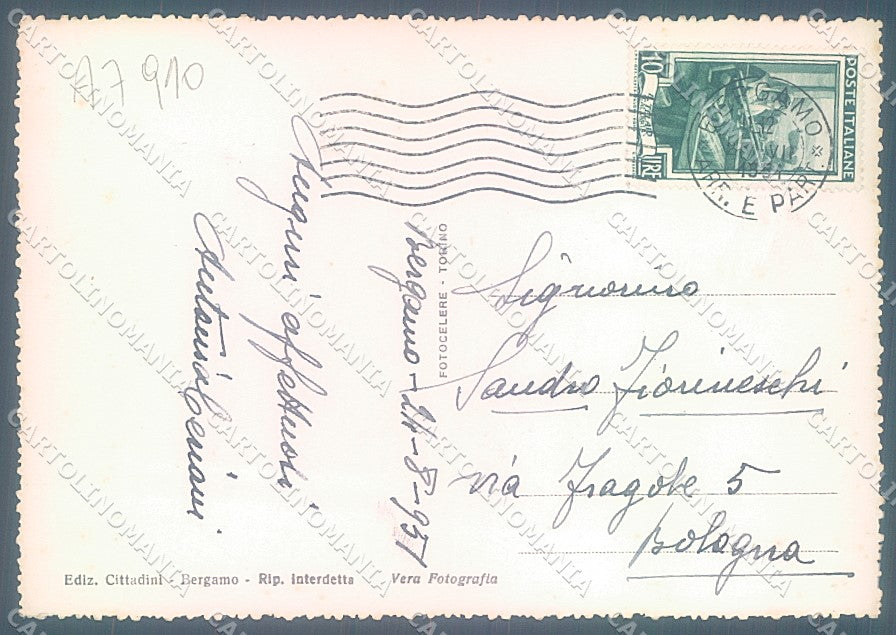 A7 910
10
LIRE
POSTE ITALIANE
BERGAMO
ARR. E PAR.
Auguri affettuosi.
Antonia
Bergamo - 24-8-951
FOTOCELERE - TORINO
Signorino
Sandro Fiorineschi
via Fragole 5
Bologna
Ediz. Cittadini - Bergamo - Rip. interdetta
Vera Fotografia
CARTOLINOMANIA